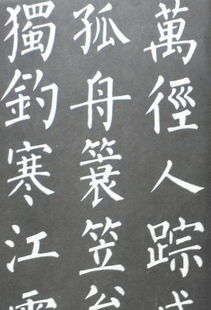 萬徑人踪
孤舟簑笠
獨釣寒江